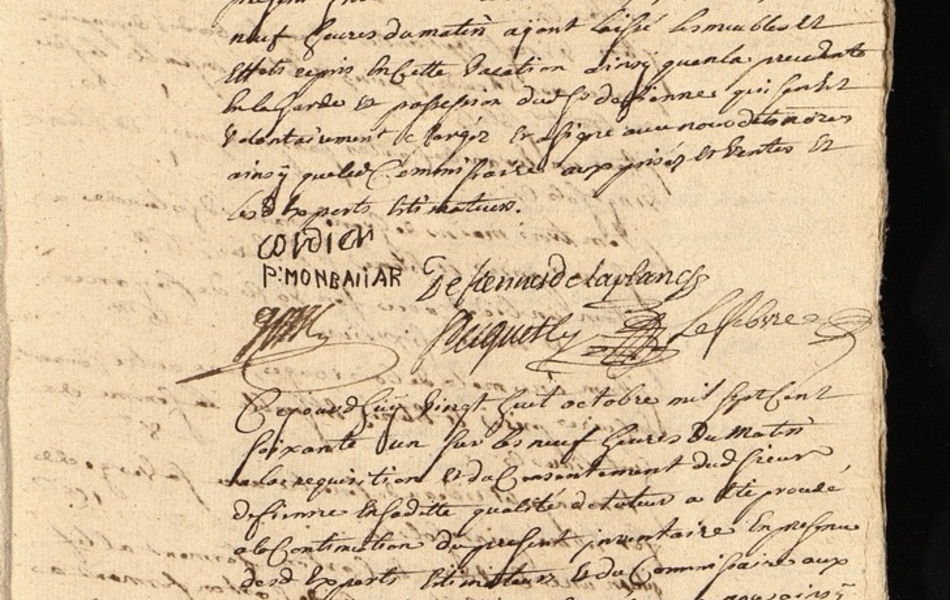 neuf heures du matin ayant laissé les meubles Et
Effets repris En cette vacation ainsy que en la precedente
En la Garde Et possession dud Sr destienne qui sen Est
Volontairement chargéz Et a signé avec nous d notaires
ainsy que led Commissaire aux prisées Et Ventes Et
les d Experts Estimateurs.
cordier
P: MONBAIIAR Destienne de laplance
Lefebvre
Cejourdhuy Vingt huit octobre mil sept Cent
soixante un sur les neuf heures Du Matin
a la requisition Et du Consentement dud sieur
destienne En sadite qualité de tuteur a Eté procedé
a la Continuation du present inventaire En presence
desd Experts Estimateurs Et du Commissaire aux